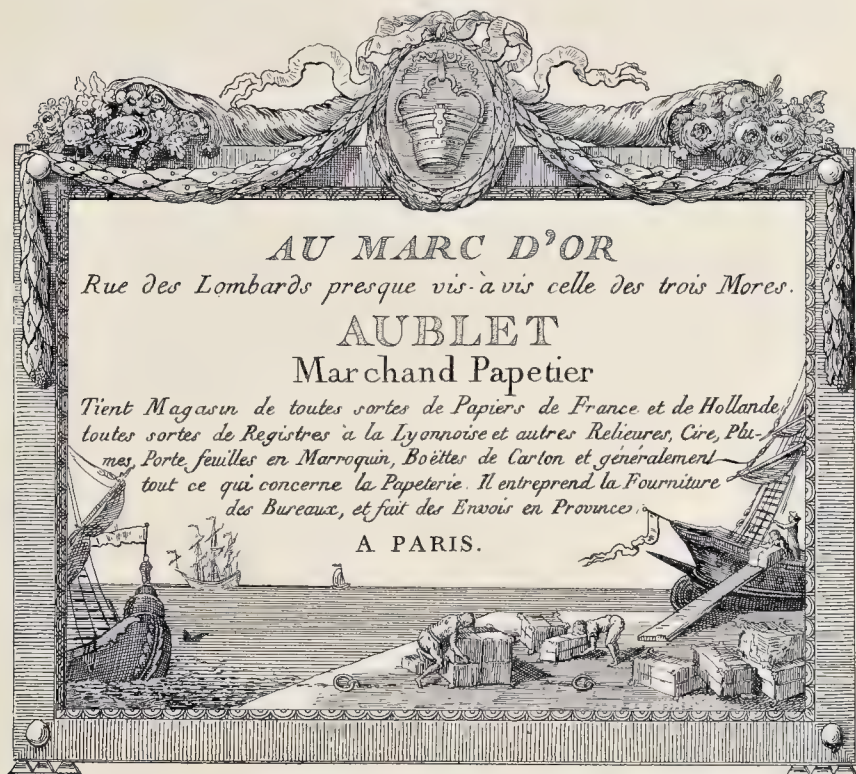 AU MARC D'OR
Rue des Lombards presque vis-à vis celle des trois Mores.
AUBLET
Marchand Papetier
Tient Magasin de toutes sortes de Papiers de France et de Hollande,
toutes sortes de Registres à la Lyonnoise et autres Relieures, Cire, Plu-
mes, Porte feuilles en Marroquin, Boëttes de Carton et généralement
tout ce qui concerne la Papeterie. Il entreprend la Fourniture
des Bureaux, et fait des Envois en Province.
A PARIS.